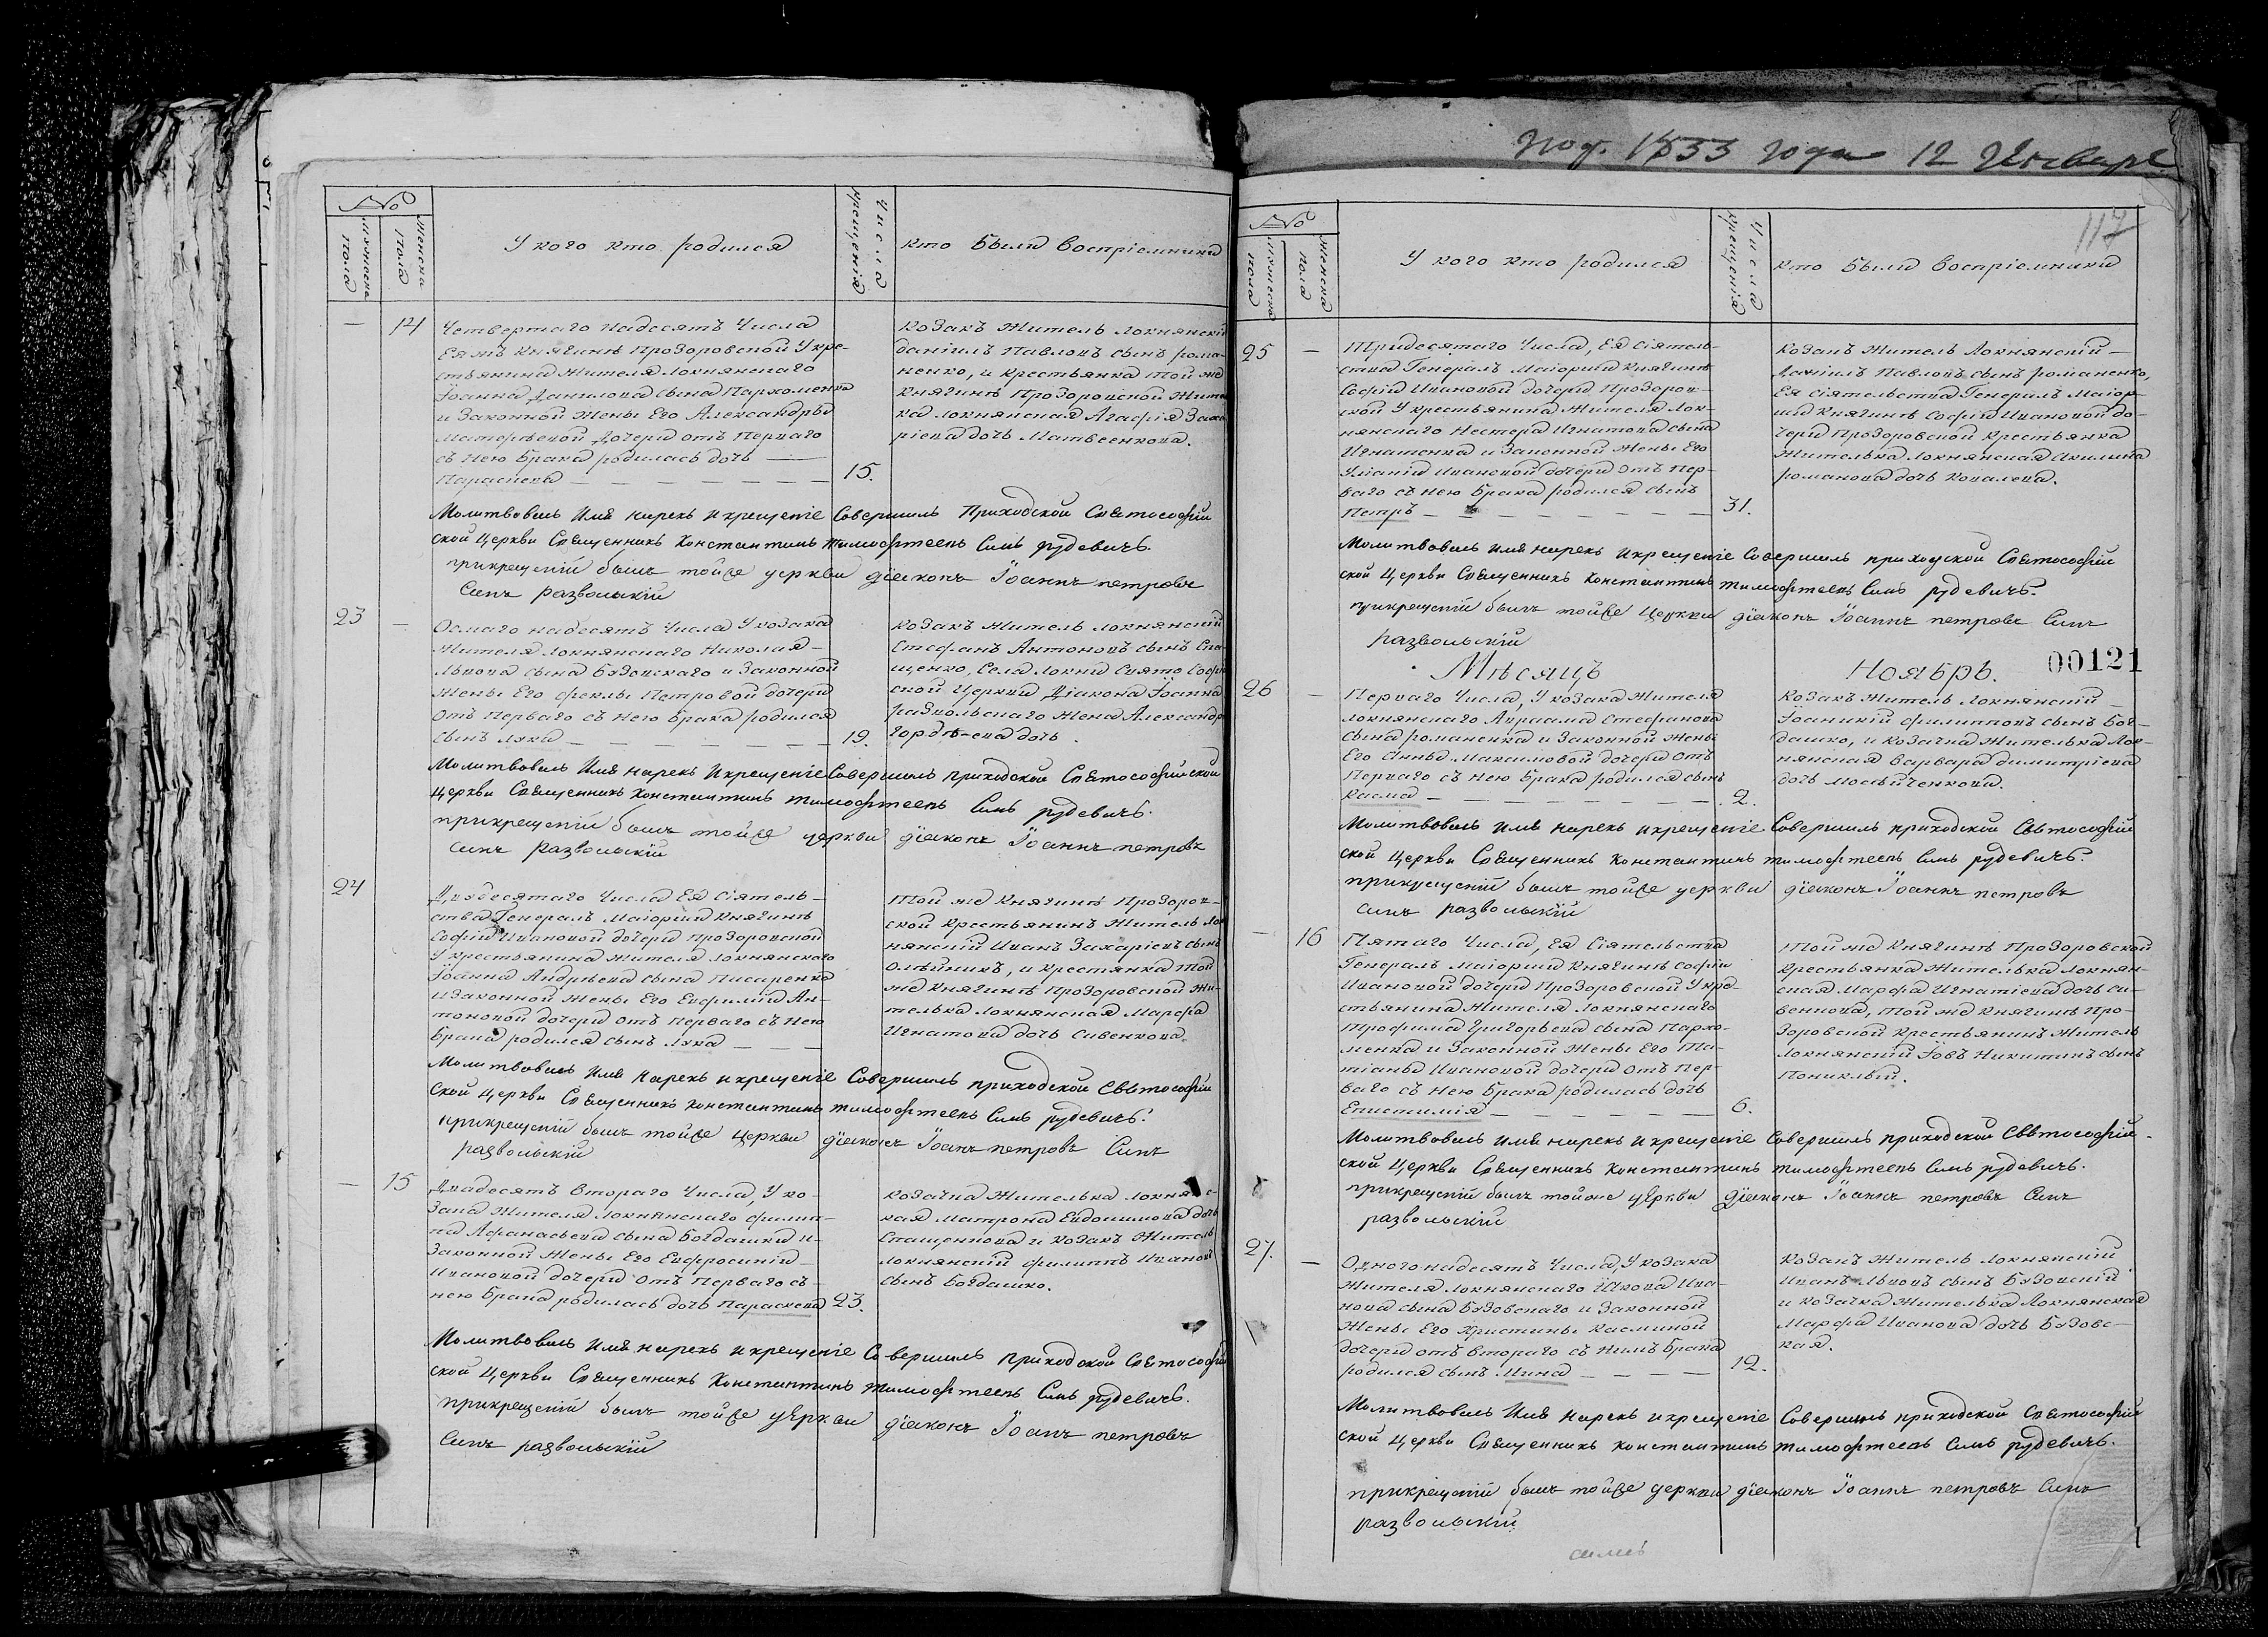 №
мужеска пола
женска пола
У кого кто родился
числа крещенія
кто были воспріемники
— 14
Четвертаго надесять Числа
Еяжъ Княгинѣ Прозоровской У кре-
стьянина Жителя Локнянскаго
Іоанна Данилова сына Пархоменка
и Законной Жены Его Александры
Матѳѣевой Дочери отъ Перваго
съ нею Брака родилась дочь —
Параскева — — — — — — 15.
Козакъ Житель Локнянскій
Даніилъ Павловъ сынъ рома-
ненко, и крестьянка той же
Княгинѣ Прозоровской Жите
ка Локнянская Агафія Заха
ріева дочь Матвеенкова.
Молитвовалъ Имя нарекъ и крещеніе Совершилъ Приходской Святософій
ской Церкви Священникъ Константинъ Тимофтеевъ Синъ рудевичъ.
прикрещеніи былъ тойже церкви діаконъ Іоаннъ петровъ
Синъ развольскій
23 —
Осмаго надесять Числа У козака
Жителя Локнянскаго Николая
Львова сына Бузовскаго и Законной
Жены Его феклы Петровой дочери
отъ Перваго съ нею Брака родился
сынъ Лука — — — — — — 19.
Козакъ Житель Локнянскій
Стефанъ Антоновъ сынъ Ста
щенко, Села Локни Свято Софі
ской Церкви Діакона Іоанна
развольскаго Жена Александр
Гордѣ-ева дочь.
Молитвовалъ Имя нарекъ И крещеніе Совершилъ приходской Святософійской
Церкви Священникъ Константинъ тимофтеевъ Синъ рудевичъ.
прикрещеніи былъ тойже церкви діаконъ Іоаннъ петровъ
синъ развольскій
24
Двадесятаго Числа Ея Сіятель-
ства Генералъ Маіорши Княгинѣ
Софіи Ивановой дочери Прозоровской
У крестьянина Жителя Локнянскаго
Іоанна Андрѣева сына Писаренка
и Законной Жены Его Евфиміи Ан-
тоновой дочери отъ Перваго съ нею
Брака родился сынъ Лука — — —
Той же Княгинѣ Прозоров-
ской Крестьянинъ Житель Лок
нянскій Иванъ Захаріевъ сынъ
Олѣйникъ, и крестянка той
же Княгинѣ Прозоровской Жи-
телька Локнянская Марфа
Игнатова дочь Сивенкова.
Молитвовалъ Имя Нарекъ и крещеніе Совершилъ приходской Святософій
Ской Церкви Священникъ Константинъ тимофтеевъ Синъ рудевичъ.
прикрещеніи былъ тойже Церкви діаконъ Іоанъ петровъ Синъ
развольскій
— 15
Двадесять Втораго Числа, У ко-
зака Жителя Локнянскаго филип-
па Афанасьева сына Богдашки и
Законной Жены Его Евфросиніи
Ивановой дочери отъ Перваго съ-
нею Брака родилась дочь Параскева 23.
Козачка Жителька Локнянс-
кая Матрона Евдокимова дочь
Стащенкова и козакъ Житель
Локнянскій филиппъ Ивановъ
сынъ Богдашко.
Молитвовалъ Имя нарекъ и крещеніе Совершилъ Приходской Святософій
ской Церкви Священникъ Константинъ тимофтеевъ Синъ рудевичъ.
прикрещеніи былъ тойже церкви діаконъ Іоанъ петровъ
Синъ развольскій
1833 года 12 Января
117
№
мужеска пола
женска пола
У кого кто родился
Числа крещенія
кто были воспріемники
25 —
Тридесятаго Числа, Ея Сіятель-
ства Генералъ Маіорши Княгинѣ
Софіи Ивановой дочери Прозоров-
ской У крестьянина Жителя Лок-
нянскаго Нестера Игнатова сына
Игнатенка и Законной Жены Его
Уліаніи Ивановой дочери отъ Пер-
ваго съ нею Брака родился сынъ
Петръ — — — — — — — 31.
Козакъ Житель Локнянскій —
Даніилъ Павловъ сынъ романенко,
Ея Сіятельства Генералъ Маіор-
ши Княгинѣ Софіи Ивановой до-
чери Прозоровской Крестьянка
Жителька Локнянская Акилина
романова дочь Ковалева.
Молитвовалъ имя нарекъ и крещеніе Совершилъ приходской Святософій
ской Церкви Священникъ Константинъ тимофтеевъ Синъ рудевичъ.
прикрещеніи былъ тойже Церкви діаконъ Іоаннъ петровъ Синъ
развольскій
Мѣсяцъ Ноябрь. 00121
26 —
Перваго Числа, У козака Жителя
Локнянскаго Авраама Стефанова
сына романенка и Законной Жены
Его Анны Максимовой дочери отъ
Перваго съ нею Брака родился сынъ
Касма — — — — — — — 2.
Козакъ Житель Локнянскій —
Іоаникій филипповъ сынъ Бог-
дашко, и козачка Жителька Лок-
нянская Варвара Димитріева
дочь Мосѣйченкова.
Молитвовалъ имя нарекъ и крещеніе Совершилъ приходской Святософій
ской Церкви Священникъ Константинъ тимофтеевъ Синъ рудевичъ.
прикрещеніи былъ тойже церкви діаконъ Іоаннъ петровъ
синъ развольскій
— 16
Пятаго Числа, Ея Сіятельства
Генералъ Маіорши Княгинѣ Софіи
Ивановой дочери Прозоровской У кре-
стьянина Жителя Локнянскаго
Трофима Григорьева сына Пархо-
менка и Законной Жены Его Та-
тіаны Ивановой дочери отъ Пер-
ваго съ нею Брака родилась дочь
Епистимія — — — — — — 6.
Той же Княгинѣ Прозоровской
Крестьянка Жителька Локнян-
ская Марфа Игнатіева дочь Си-
венкова, той же Княгинѣ Про-
зоровской Крестьянинъ Житель
Локнянскій Іовъ Никитинъ сынъ
Пониклый.
Молитвовалъ Имя нарекъ и крещеніе Совершилъ приходской Святософій-
ской Церкви Священникъ Константинъ тимофтеевъ Синъ рудевичъ.
прикрещеніи былъ тойже церкви діаконъ Іоаннъ петровъ Синъ
развольскій
27. —
Одного надесять Числа, У козака
Жителя Локнянскаго Іякова Ива-
нова сына Бузовскаго и Законной
Жены Его Христины Касминой
дочери отъ втораго съ нимъ Брака
родился сынъ Мина — — — — 12.
Козакъ Житель Локнянскій
Иванъ Львовъ сынъ Бузовскій
и козачка Жителька Локнянская
Марфа Иванова дочь Бузовс-
кая.
Молитвовалъ Имя нарекъ и крещеніе Совершилъ приходской Святософій
ской Церкви Священникъ Константинъ тимофтеевъ Синъ рудевичъ.
прикрещеніи былъ тойже церкви діаконъ Іоаннъ петровъ Синъ
развольскій